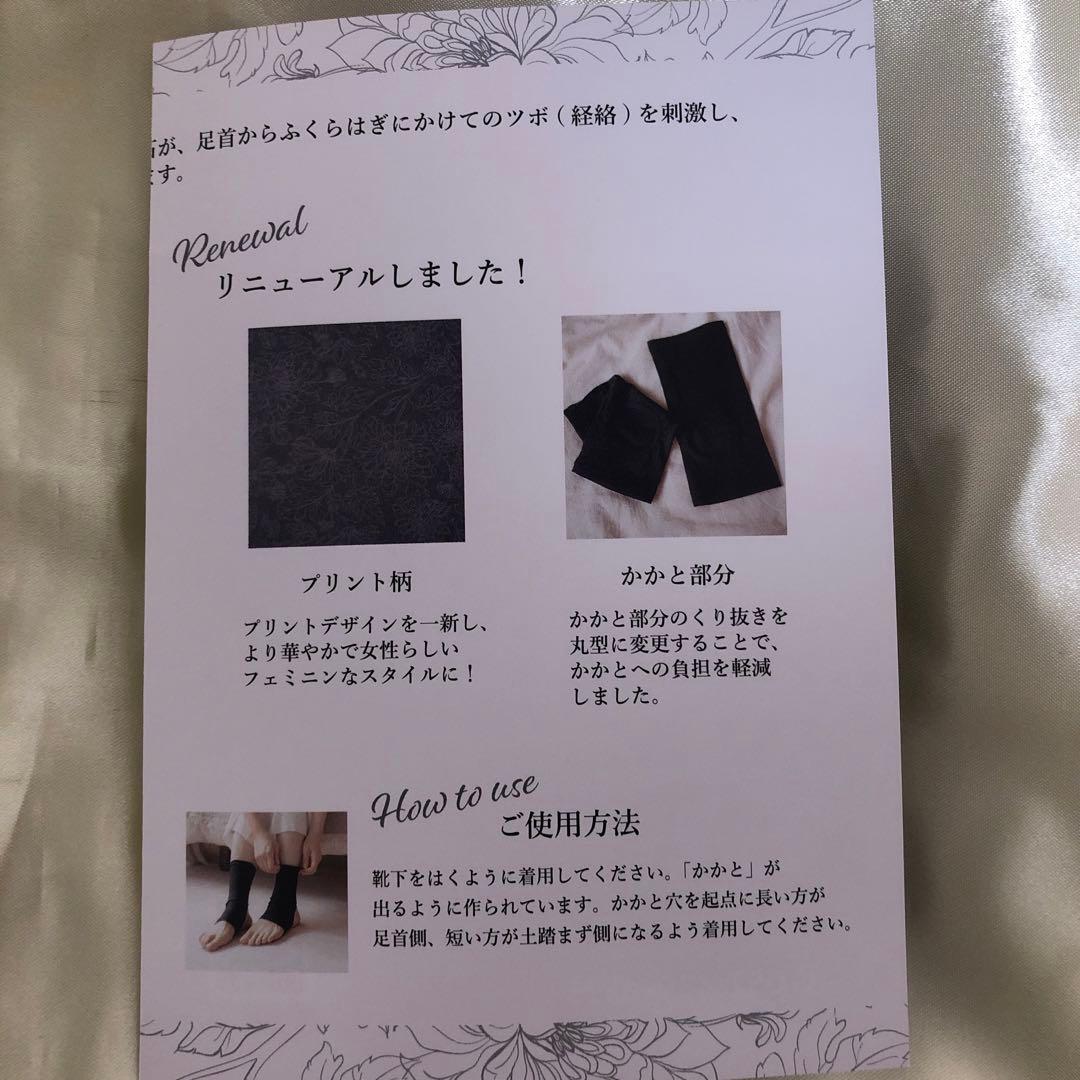 が、足首からふくらはぎにかけてのツボ(経絡)を刺激し、
ます。
Renewal
リニューアルしました！
プリント柄
プリントデザインを一新し、
より華やかで女性らしい
フェミニンなスタイルに！
かかと部分
かかと部分のくり抜きを
丸型に変更することで、
かかとへの負担を軽減
しました。
How to use
ご使用方法
靴下をはくように着用してください。「かかと」が
出るように作られています。かかと穴を起点に長い方が
足首側、短い方が土踏まず側になるよう着用してください。